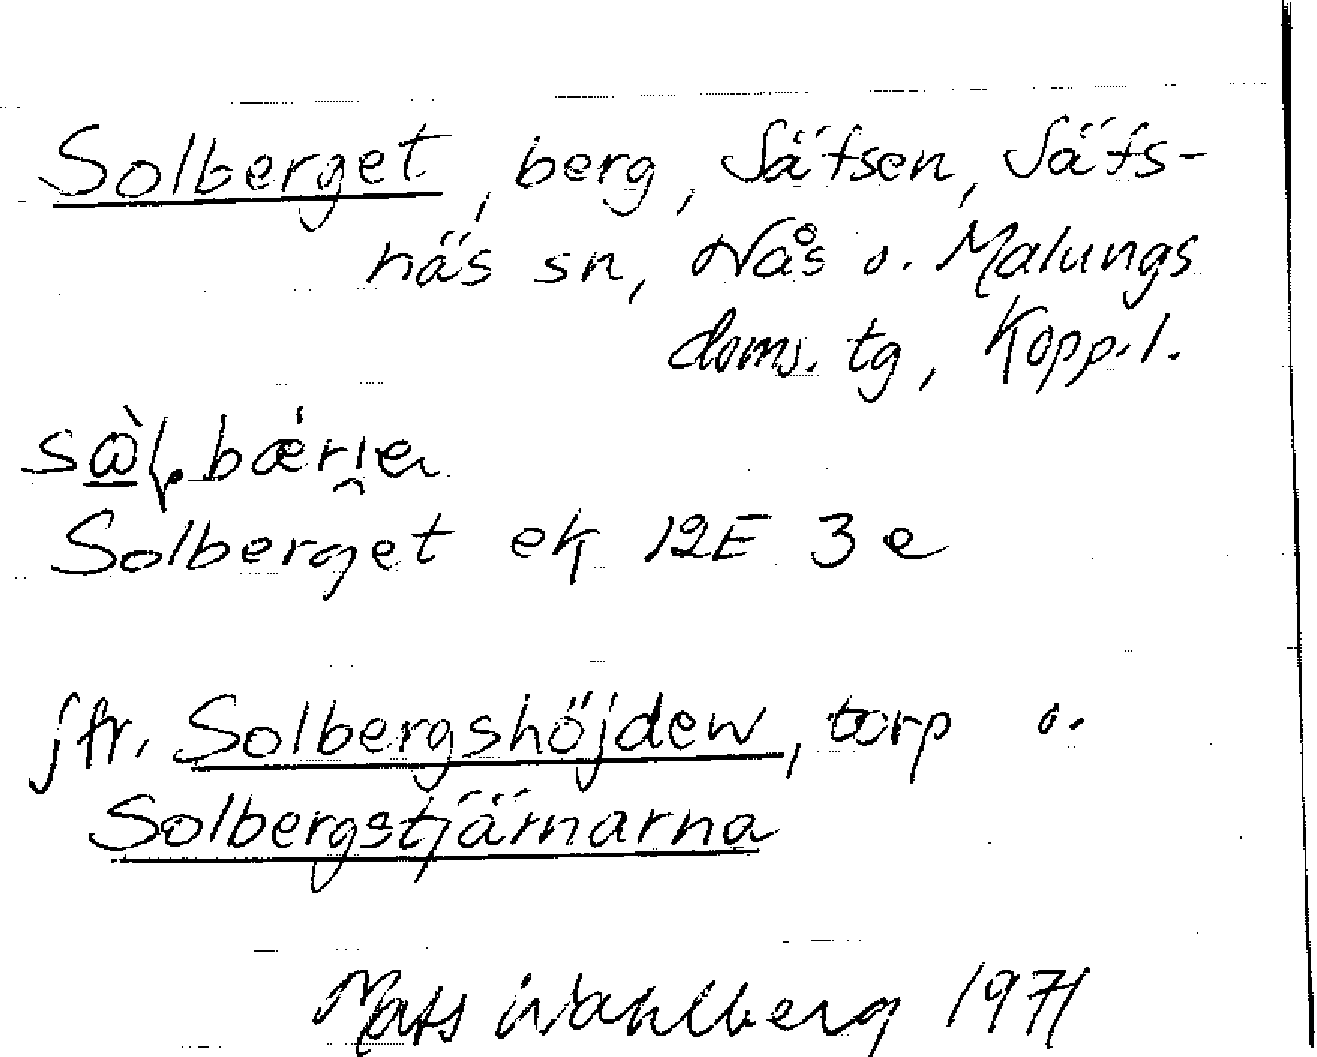 Solberget, berg, Säfsen, Säfs-
näs sn, Nås o. Malungs
doms. tg, Kopp. l.
Solberget ek 12E 3e
jfr. Solbergshöjden, torp o.
Solbergstjärnarna
Mats Wahlberg 1971